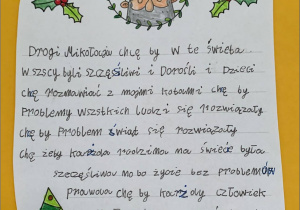 Drogi Mikołaju chcę by w te święta
wszscy byli szczęśliwi i Dorośli i Dzieci
chę rozmawiać z mojimi kotami chę by
Problemy wszstkich ludzi się rozwiązały
chę by Problem świąt się rozwiązały
chę żeby każda rodzina na świecie była
szczęśliwa no bo życie bez problemów
prawda chę by każdy człowiek